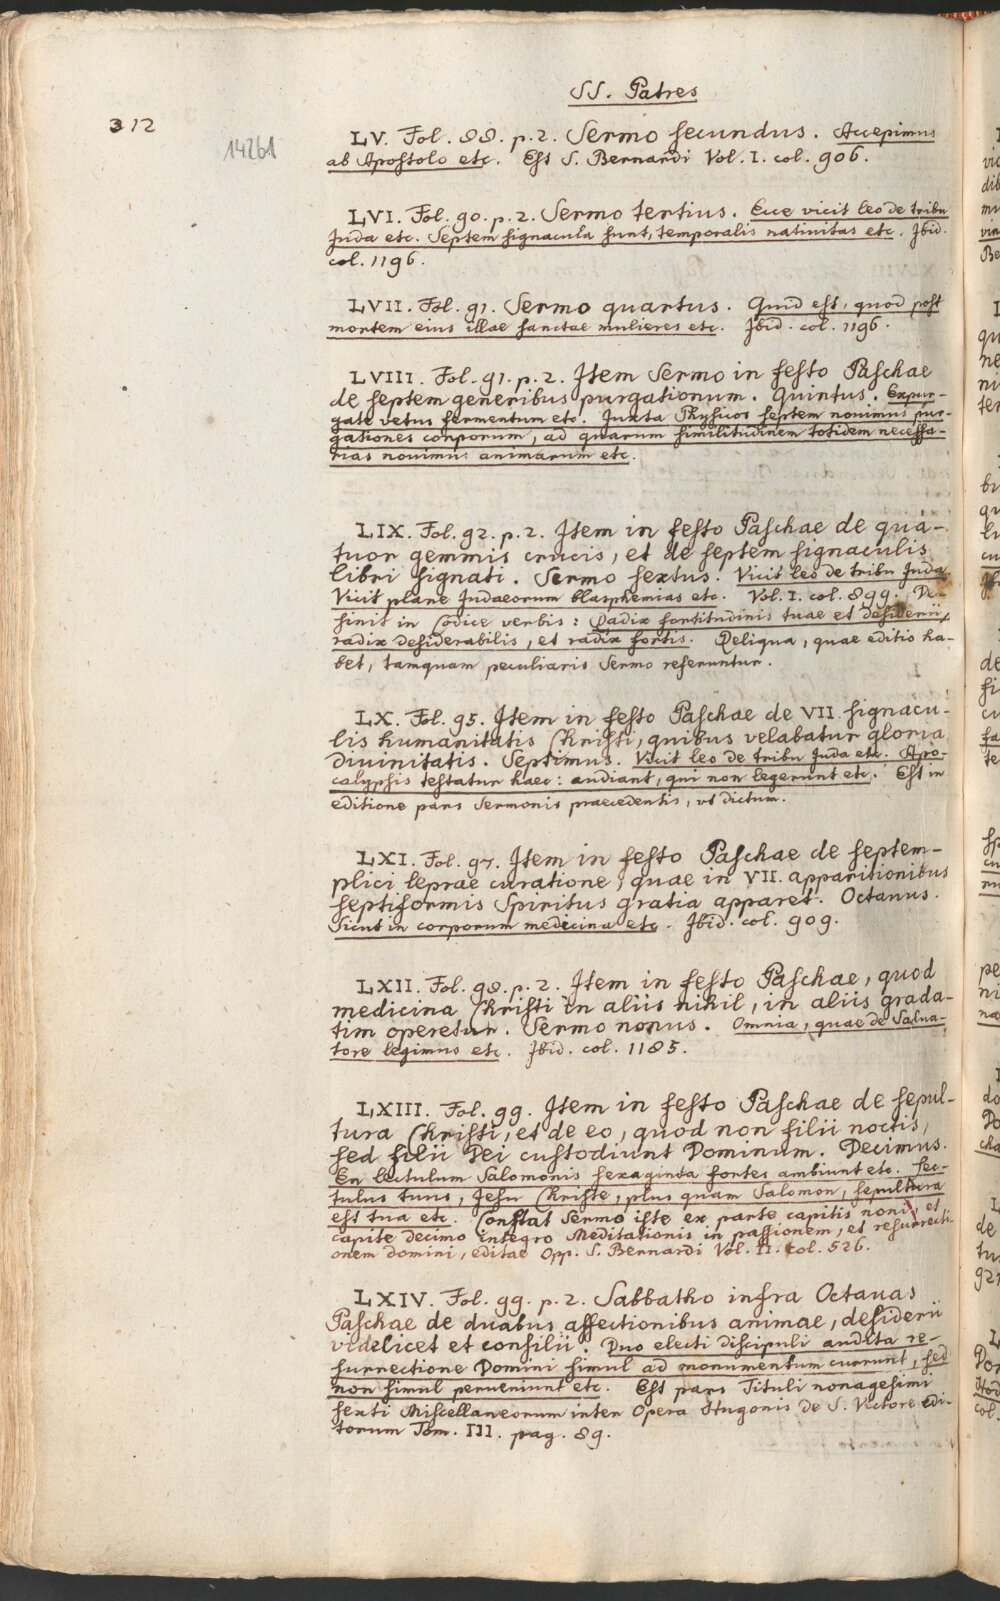 SS. Patres
312
14261
LV. Fol. 88. p. 2. Sermo secundus. Accepimus
ab Apostolo etc. Est S. Bernardi Vol. I. col. 906.
LVI. Fol. 90. p. 2. Sermo tertius. Ecce vicit leo de tribu
Juda etc. Septem signacula sunt, temporalis nativitas etc. Ibid.
col. 1196.
LVII. Fol. 91. Sermo quartus. Quid est, quod post
mortem eius illae sanctae mulieres etc. Ibid. col. 1196.
LVIII. Fol. 91. p. 2. Item Sermo in festo Paschae
de septem generibus purgationum. Quintus. Expur-
gate vetus fermentum etc. Iuxta Physicos septem novimus pur-
gationes corporum, ad quarum similitudinem totidem necessa-
rias novimus animarum etc.
LIX. Fol. 92. p. 2. Item in festo Paschae de qua-
tuor gemmis crucis, et de septem signaculis
libri signati. Sermo sextus. Vicit leo de tribu Juda
Vicit plane Judaeorum blasphemias etc. Vol. I. col. 899. De-
sinit in Codice verbis: Radix fortitudinis tuae et desiderii,
radix desiderabilis, et radix fortis. Reliqua, quae editio ha-
bet, tamquam peculiaris Sermo referuntur.
LX. Fol. 95. Item in festo Paschae de VII. signacu-
lis humanitatis Christi, quibus velabatur gloria
divinitatis. Septimus. Vicit leo de tribu Juda etc. Apo-
calypsis testatur haec: audiant, qui non legerunt etc. Est in
editione pars Sermonis praecedentis, vt dictum.
LXI. Fol. 97. Item in festo Paschae de septem-
plici leprae curatione, quae in VII. apparitionibus
septiformis Spiritus gratia apparet. Octavus.
Sicut in corporum medicina etc. Ibid. col. 909.
LXII. Fol. 98. p. 2. Item in festo Paschae, quod
medicina Christi in aliis nihil, in aliis grada-
tim operetur. Sermo nonus. Omnia, quae de Salva-
tore legimus etc. Ibid. col. 1185.
LXIII. Fol. 99. Item in festo Paschae de sepul-
tura Christi, et de eo, quod non filii noctis,
sed filii Dei custodiunt Dominum. Decimus.
En lectulum Salomonis sexaginta fortes ambiunt etc. Lec-
tulus tuus, Jesu Christe, plus quam Salomon, sepultura
est tua etc. Constat Sermo iste ex parte capitis noni, et
capite decimo integro Meditationis in passionem, et resurrecti-
onem domini, editae Opp. S. Bernardi Vol. II. col. 526.
LXIV. Fol. 99. p. 2. Sabbatho infra Octavas
Paschae de duabus affectionibus animae, desiderii
videlicet et consilii. Duo electi discipuli audita re-
surrectione Domini simul ad monumentum currunt, sed
non simul perveniunt etc. Est pars Tituli nonagesimi
sexti Miscellaneorum inter Opera Hugonis de S. Victore edi-
torum Tom. III. pag. 89.